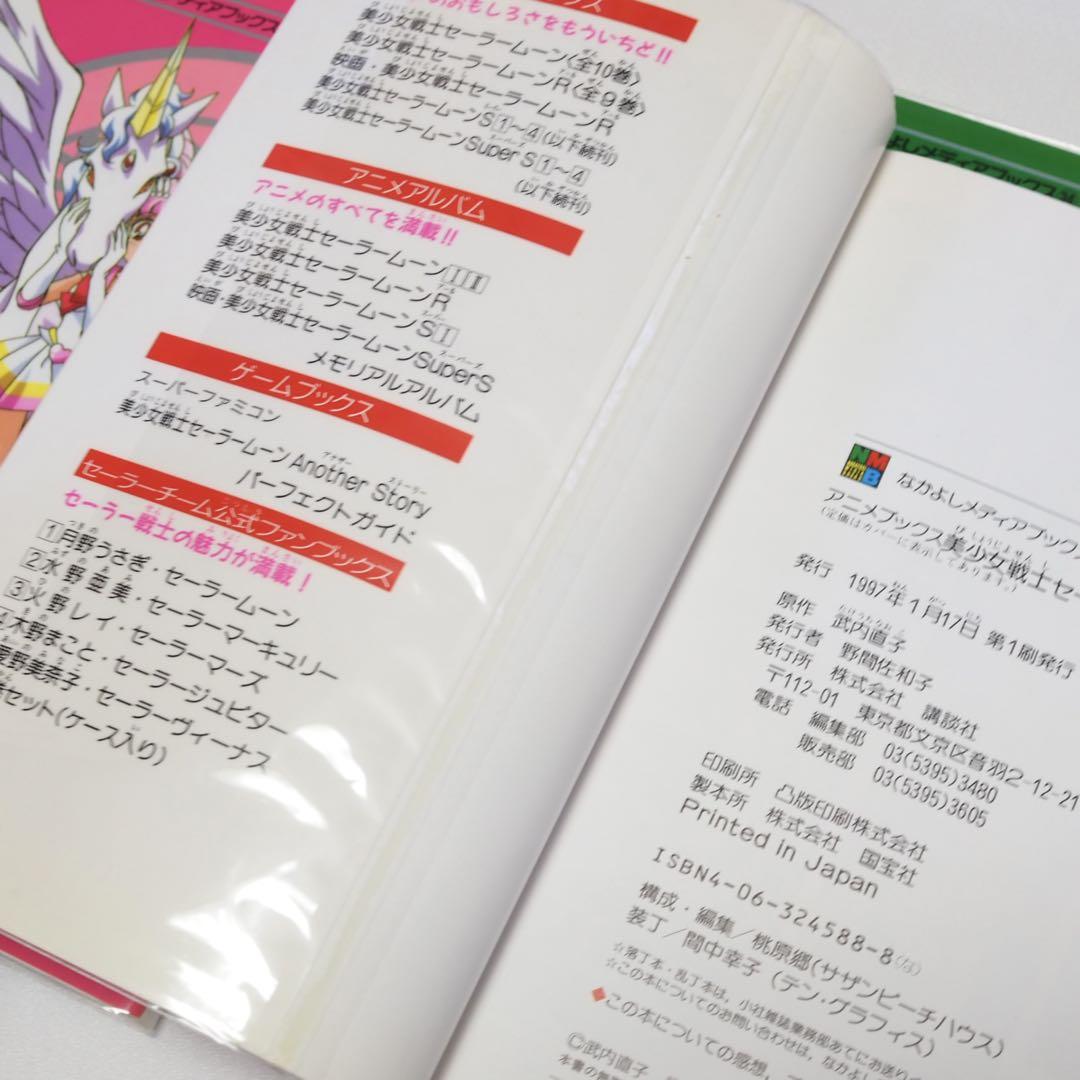 ディアブックス
ックス
のおもしろさをもういちど!!
美少女戦士セーラームーン〈全10巻〉
美少女戦士セーラームーンR〈全9巻〉
映画・美少女戦士セーラームーンR
美少女戦士セーラームーンS1~4(以下続刊)
美少女戦士セーラームーンSuper S1~4
(以下続刊)
アニメアルバム
アニメのすべてを満載!!
美少女戦士セーラームーンⅠⅡ
美少女戦士セーラームーンR
美少女戦士セーラームーンSⅠ
映画・美少女戦士セーラームーンSuperS
メモリアルアルバム
ゲームブックス
スーパーファミコン
美少女戦士セーラームーンAnother Story
パーフェクトガイド
セーラーチーム公式ファンブックス
セーラー戦士の魅力が満載!
1月野うさぎ・セーラームーン
2水野亜美・セーラーマーキュリー
3火野レイ・セーラーマーズ
4木野まこと・セーラージュピター
愛野美奈子・セーラーヴィーナス
セット(ケース入り)
よしメディアブックス
NMB
なかよしメディアブックス
アニメブックス美少女戦士セー
(定価はカバーに表示してあります)
発行 1997年1月17日 第1刷発行
原作 武内直子
発行者 野間佐和子
発行所 株式会社 講談社
〒112-01 東京都文京区音羽2-12-21
電話 編集部 03(5395)3480
販売部 03(5395)3605
印刷所 凸版印刷株式会社
製本所 株式会社 国宝社
Printed in Japan
ISBN4-06-324588-8(な)
構成・編集/桃原郷(サザンビーチハウス)
装丁/間中幸子(テン・グラフィス)
☆落丁本・乱丁本は、小社雑誌業務部あてにお送り
☆この本についてのお問い合わせは、なかよし
◆この本についての感想、
©武内直子
本書の無